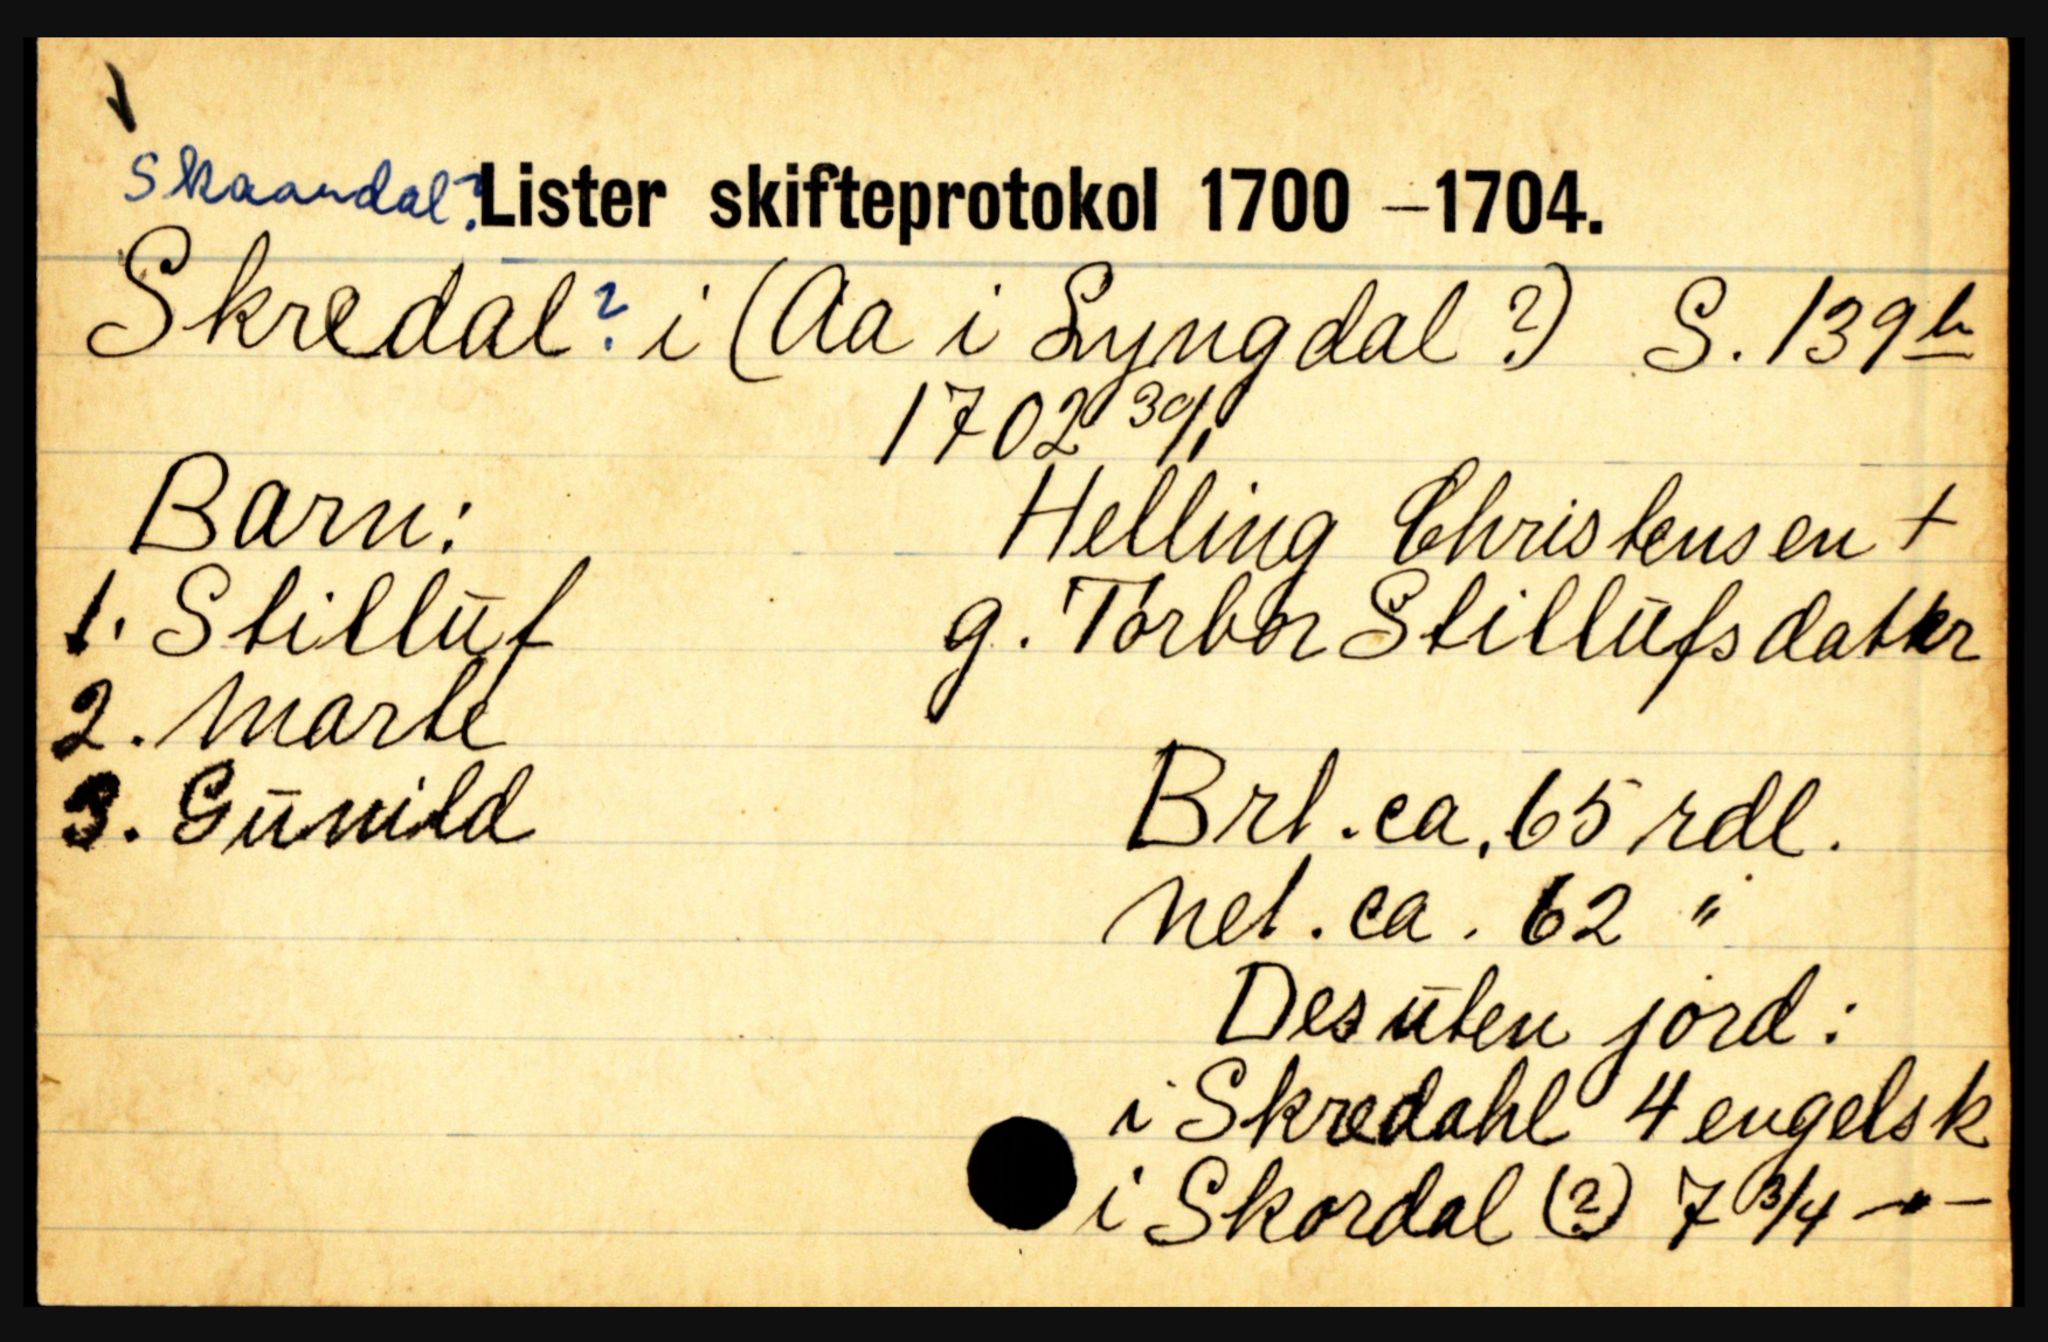 Skaandal? Lister skifteprotokol 1700 – 1704.
Skredal? i (Aa i Lyngdal?) S. 139 b
1702 30/1
Barn:
Helling Christensen +
1. Stilluf
g. Torbor Stillufsdatter
2. Marte
3. Gunild
Brt. ca. 65 rdl.
net. ca. 62 "
Desuten jord:
i Skredahl 4 engelsk
i Skordal (?) 7 3/4 -"-